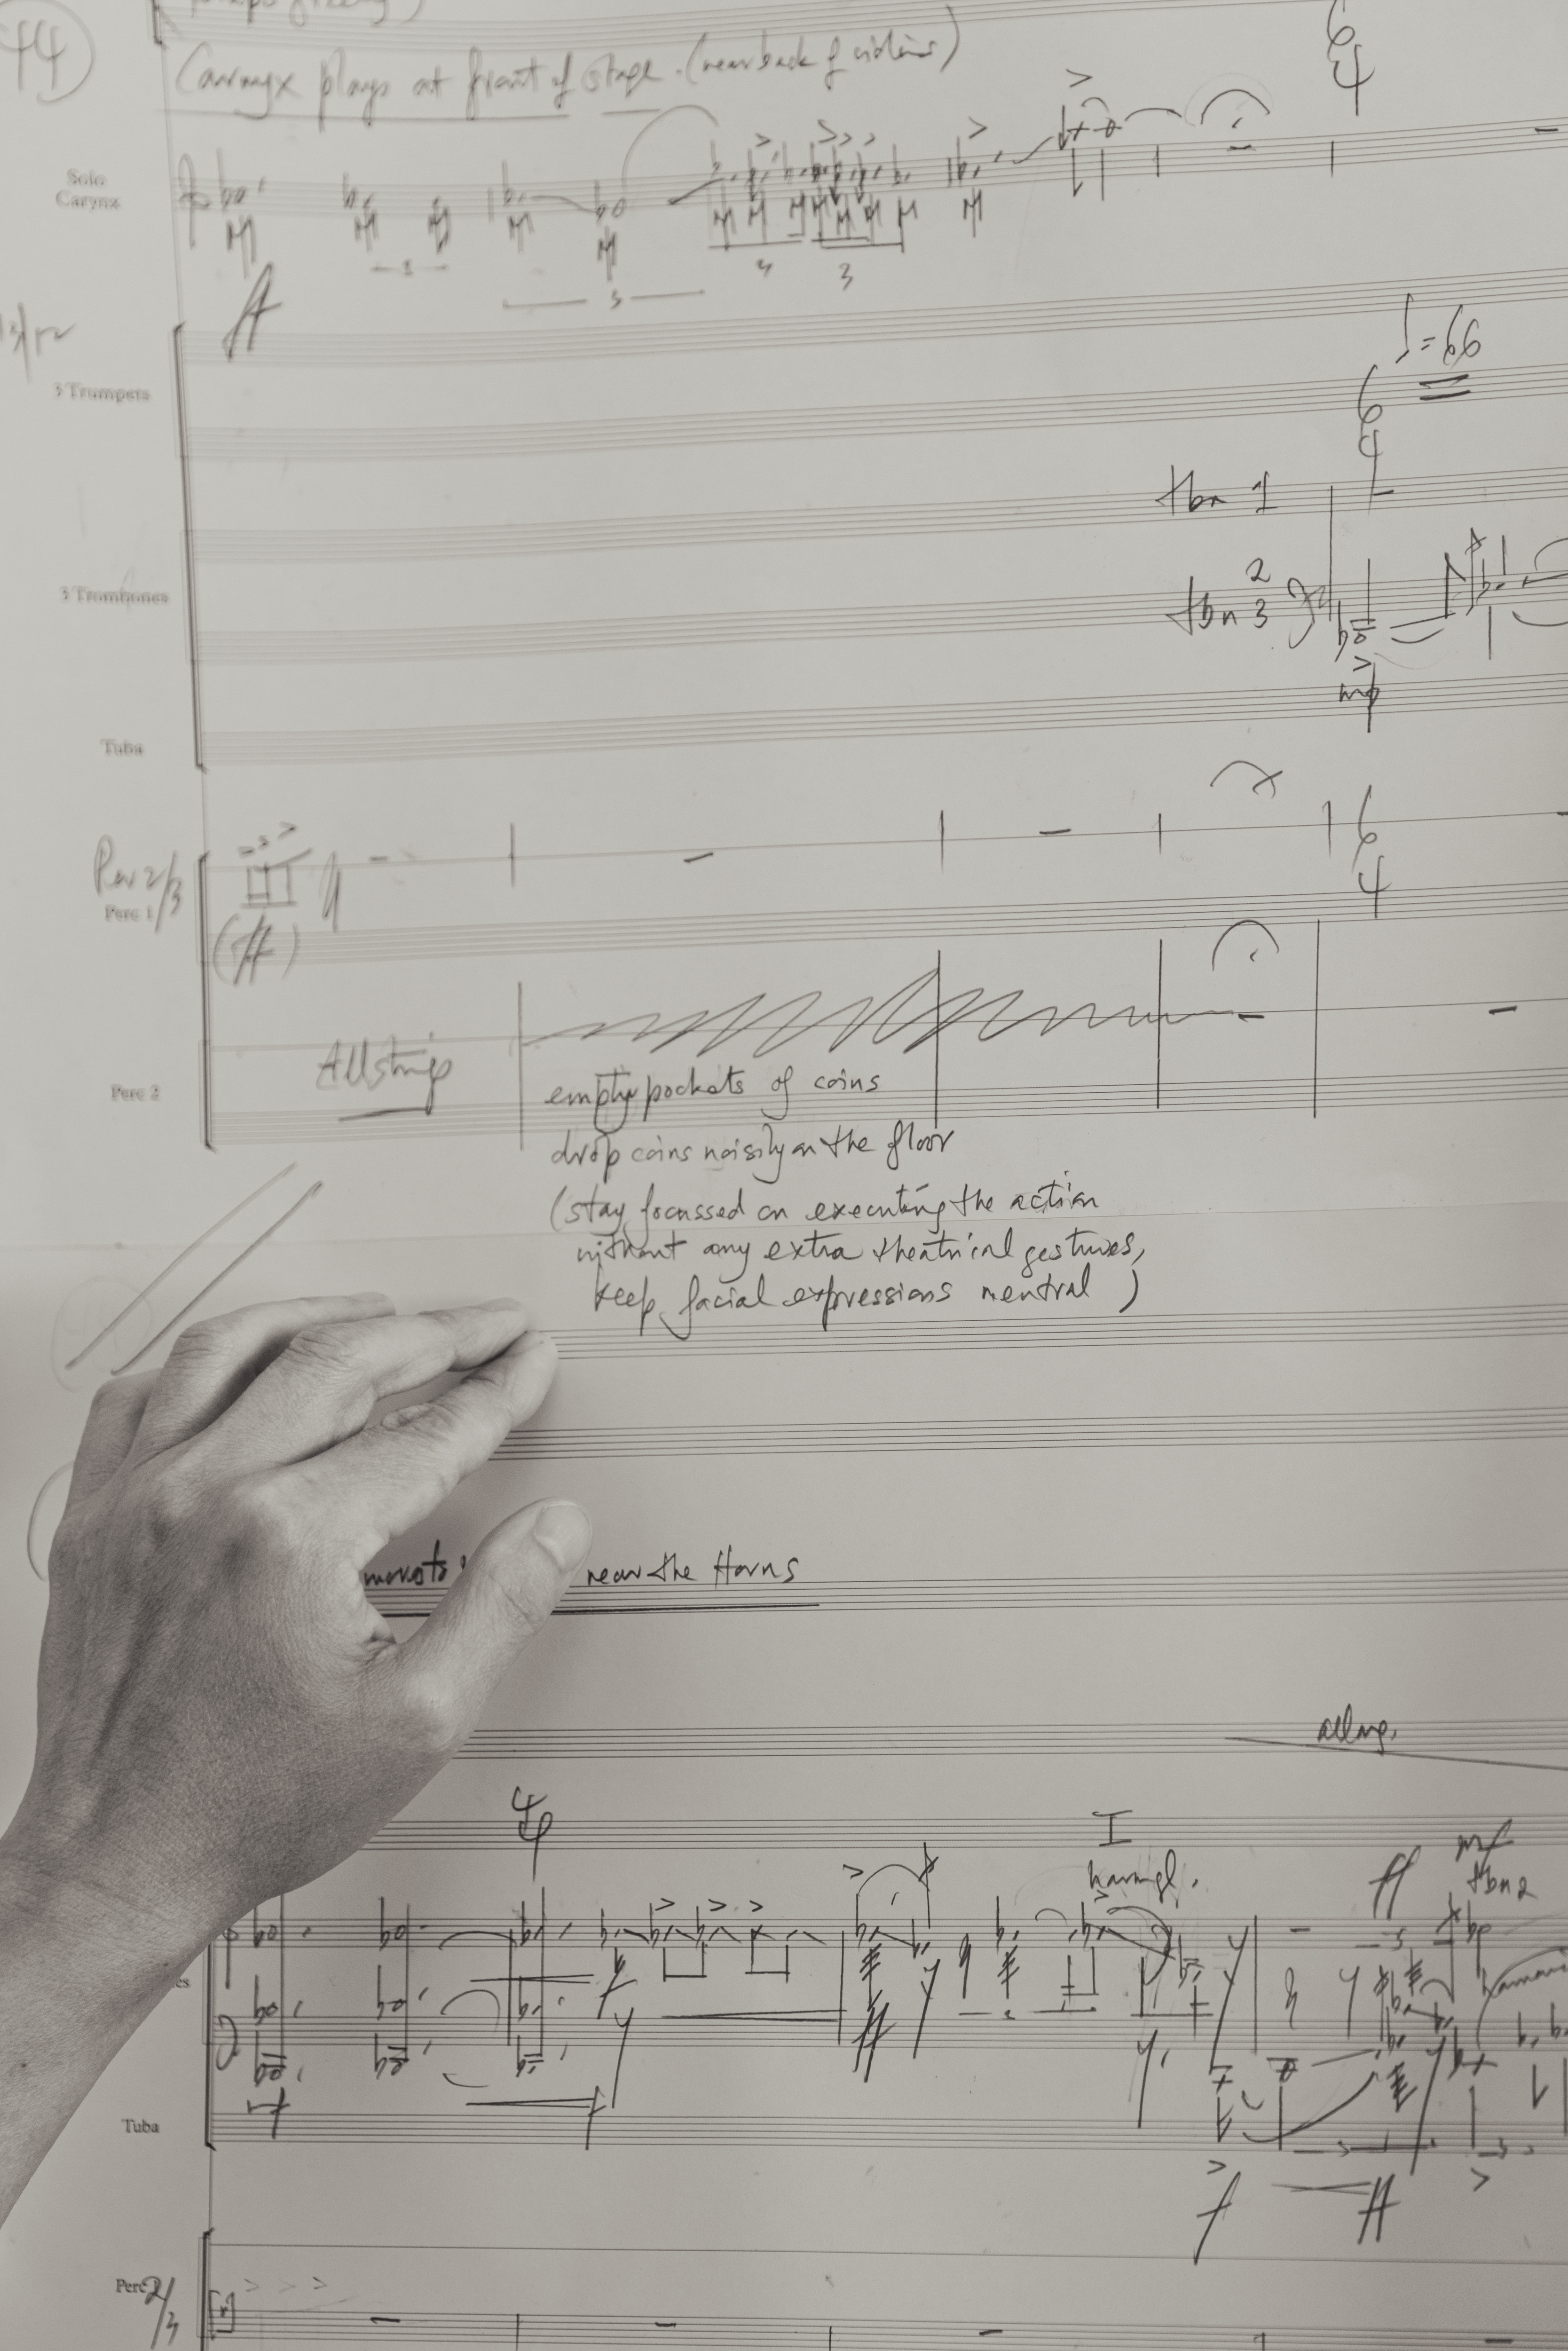 44
Carnyx plays at front of stage. (near back of violins)
6
4
Solo
Carynx
3
3
ff
♩=66
3 Trumpets
6
4
tbn 1
3 Trombones
2
tbn 3
mp
Tuba
Per 2/3
Perc 1
6
4
(ff)
All strings
Perc 2
empty pockets of coins
drop coins noisily on the floor
(stay focussed on executing the action
without any extra theatrical gestures,
keep facial expressions neutral)
moves to
near the Horns
I
ff
mf
tbn 2
es
f
ff
Tuba
f
ff
Perc 2/3